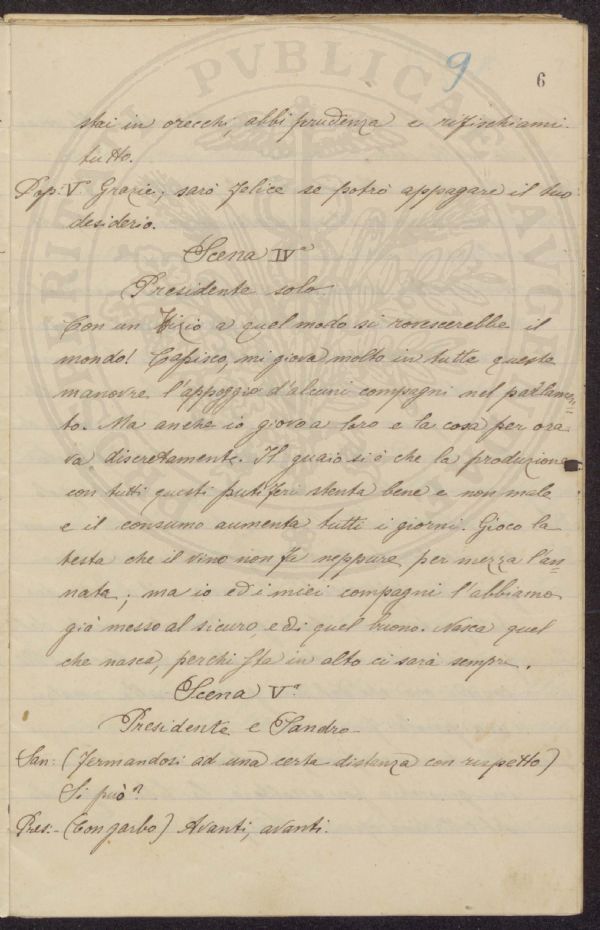 9
6
stai in orecchi, abbi prudenza e rifischiami
tutto.
Pop: V° Grazie; sarò felice se potrò appagare il tuo
desiderio.
Scena IVª
Presidente solo
Con un Tizio a quel modo si rovescerebbe il
mondo! Capisco, mi giova molto in tutte queste
manovre l'appoggio d'alcuni compagni nel parlamen=
to. Ma anche io giovo a loro e la cosa per ora
va discretamente. Il guaio si è che la produzione
con tutti questi putiferi stenta bene e non male
e il consumo aumenta tutti i giorni. Gioco la
testa che il vino non fu neppure per mezza l'an=
nata; ma io ed i miei compagni l'abbiamo
già messo al sicuro, e di quel buono. Nasca quel
che nasca, perchi sta in alto ci sarà sempre.
Scena Vª
Presidente e Sandro
San: (fermandosi ad una certa distanza con rispetto)
Si può?
Pres:- (Con garbo) Avanti, avanti.